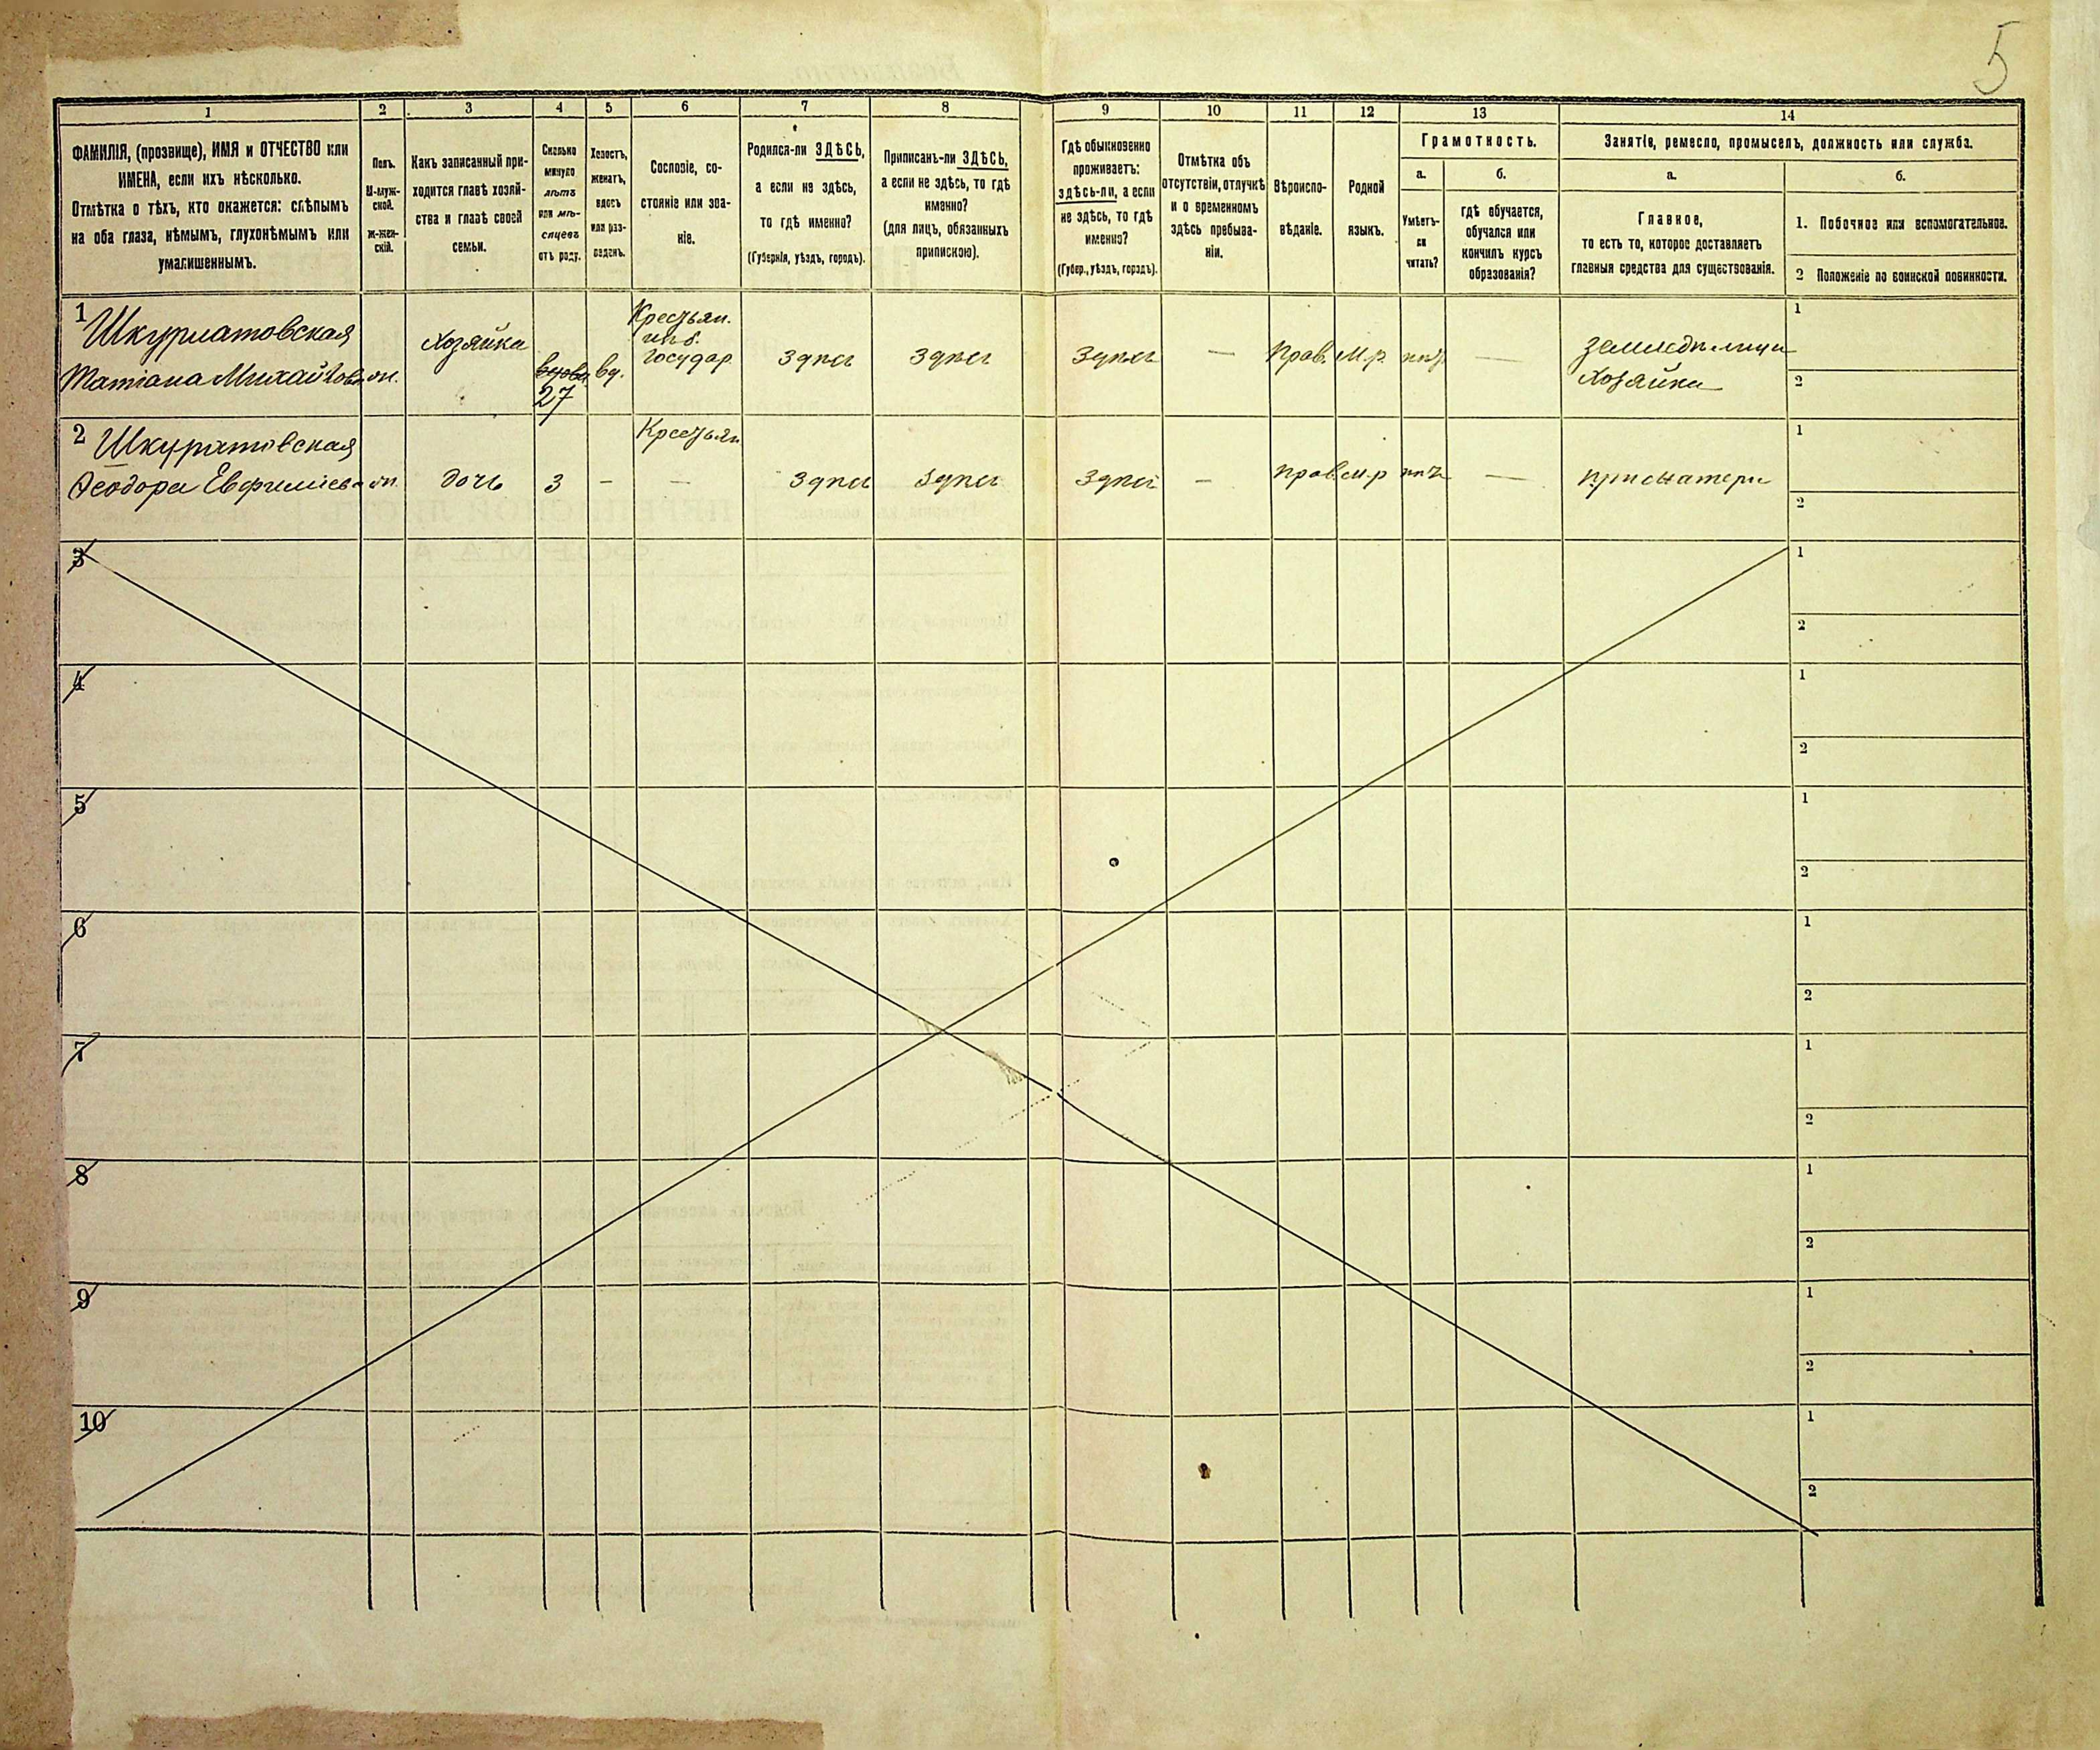 5
1 2 3 4 5 6 7 8 9 10 11 12 13 14
ФАМИЛІЯ, (прозвище), ИМЯ и ОТЧЕСТВО или
ИМЕНА, если ихъ нѣсколько.
Отмѣтка о тѣхъ, кто окажется: слѣпымъ
на оба глаза, нѣмымъ, глухонѣмымъ или
умалишеннымъ.
Полъ.
М-муж-
ской.
Ж-жен-
скій.
Какъ записанный при-
ходится главѣ хозяй-
ства и главѣ своей
семьи.
Сколько
минуло
лѣтъ
или мѣ-
сяцевъ
отъ роду.
Холостъ,
женатъ,
вдовъ
или раз-
веденъ.
Сословіе, со-
стояніе или зва-
ніе.
Родился-ли ЗДѢСЬ,
а если не здѣсь,
то гдѣ именно?
(Губернія, уѣздъ, городъ).
Приписанъ-ли ЗДѢСЬ,
а если не здѣсь, то гдѣ
именно?
(для лицъ, обязанныхъ
припискою).
Гдѣ обыкновенно
проживаетъ:
здѣсь-ли, а если
не здѣсь, то гдѣ
именно?
(Губер., уѣздъ, городъ).
Отмѣтка объ
отсутствіи, отлучкѣ
и о временномъ
здѣсь пребыва-
ніи.
Вѣроиспо-
вѣданіе.
Родной
языкъ.
Грамотность.
а.
Умѣетъ-
ли
читать?
б.
гдѣ обучается,
обучался или
кончилъ курсъ
образованія?
Занятіе, ремесло, промыселъ, должность или служба.
а.
Главное,
то есть то, которое доставляетъ
главныя средства для существованія.
б.
1. Побочное или вспомогательное.
2 Положеніе по воинской повинности.
1
Шкурматовская
Татіана Михайлова
ж.
Хозяйка
27
вд.
Крестьян.
изъ б.
государ.
здѣсь
здѣсь
здѣсь
—
Прав.
М.р.
нѣтъ
—
земледѣлица
Хозяйка
1
2
2
Шкуратовская
Ѳеодора Евфиміева
ж.
дочь
3
—
Крестьян
—
здѣсь
здѣсь
здѣсь
—
прав.
м.р
нѣтъ
—
при матери
1
2
3
1
2
4
1
2
5
1
2
6
1
2
7
1
2
8
1
2
9
1
2
10
1
2